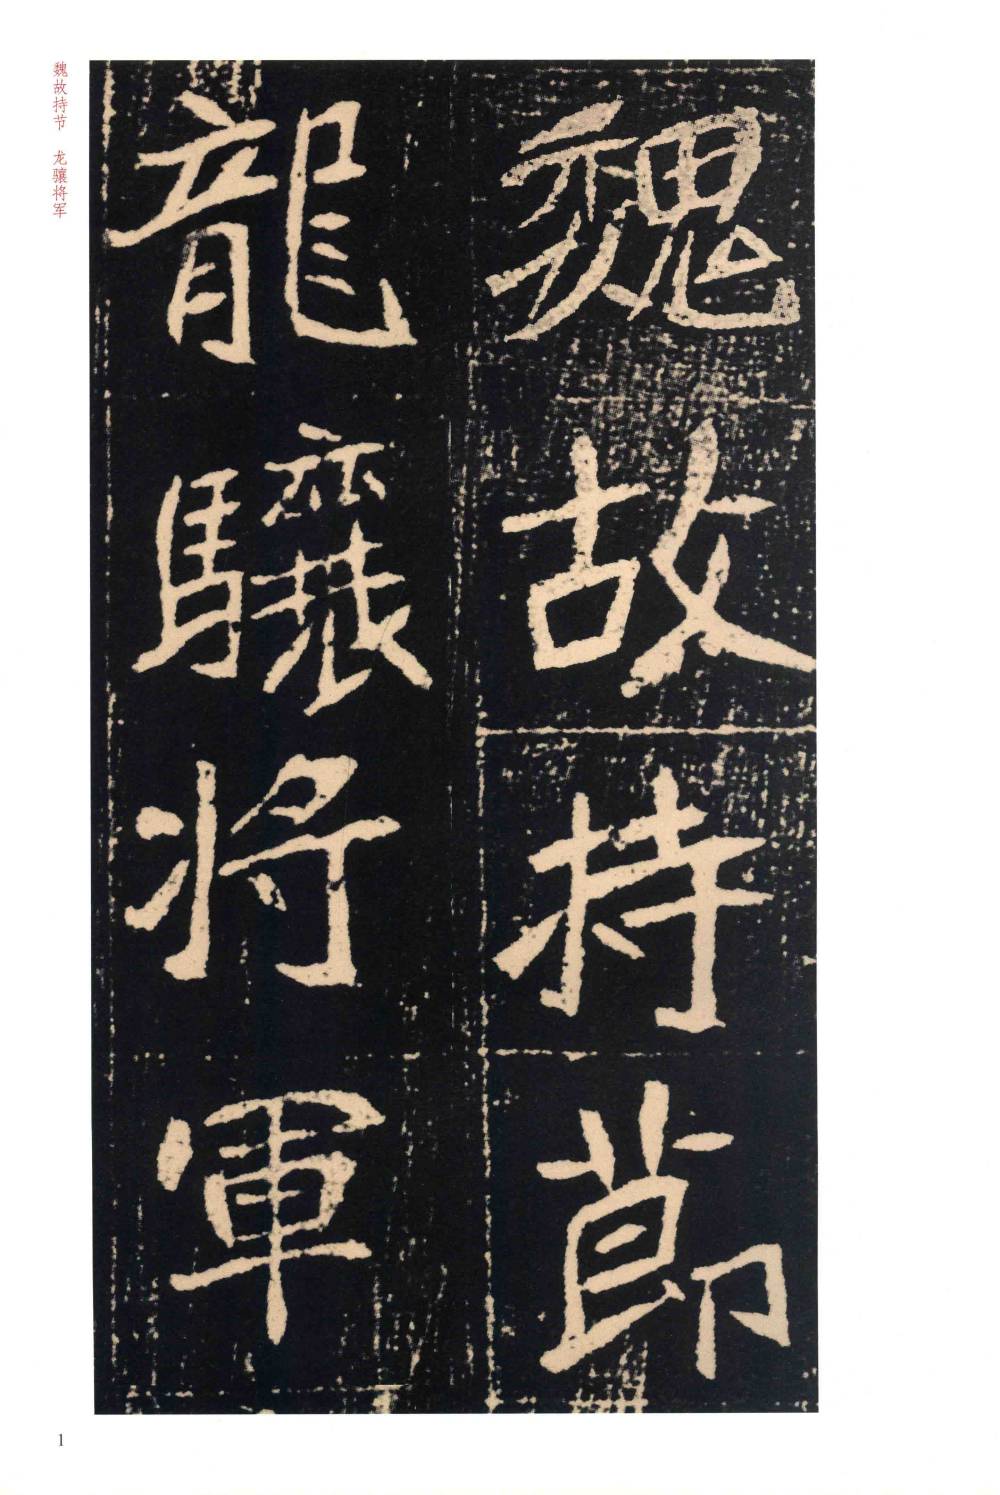 魏故持節
龍驤將軍
魏故持节 龙骧将军
1